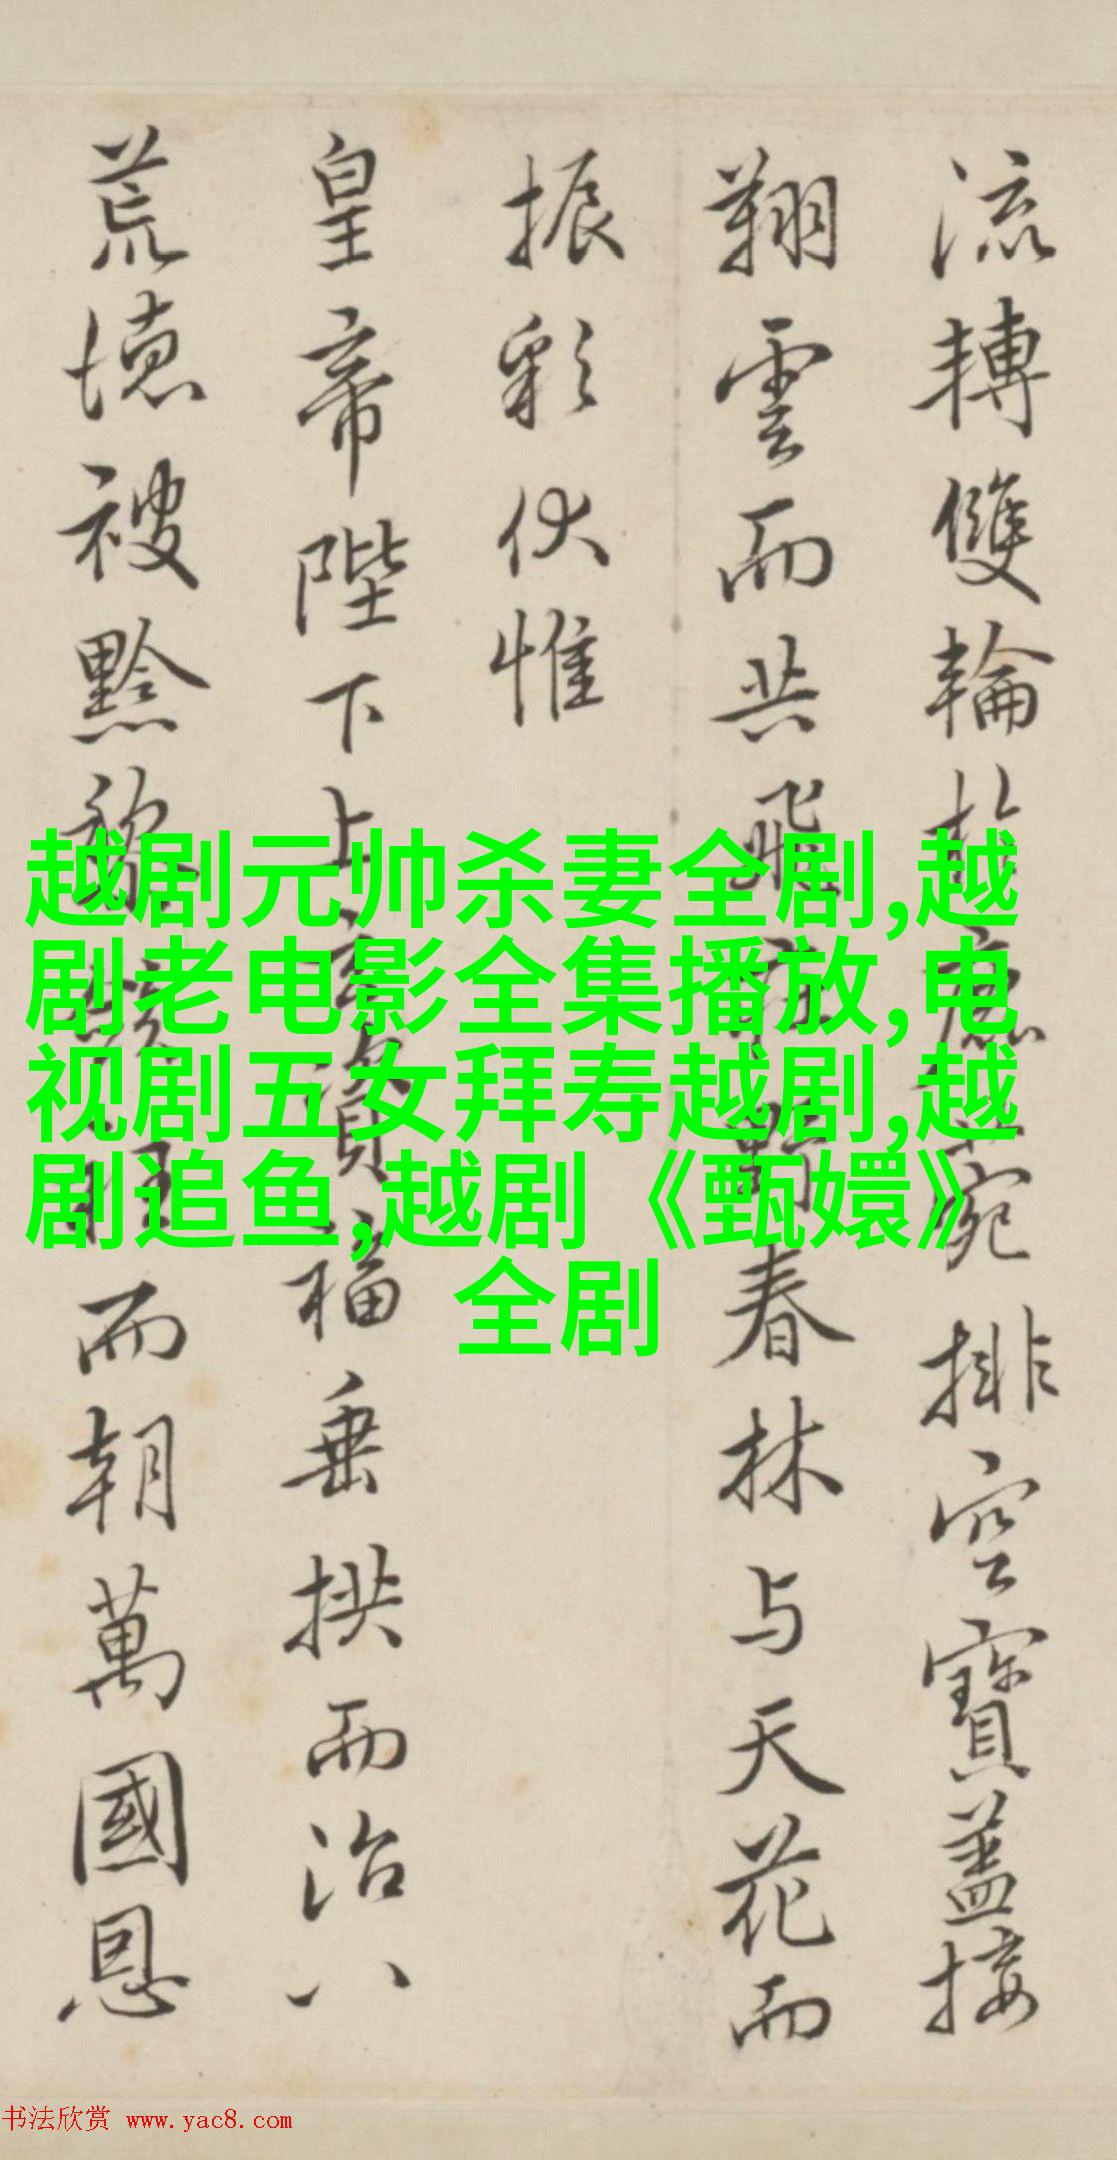 流轉雙輪於鹿苑排空寶蓋接
翔雲而共飛野春林与天花而
振彩伏惟
皇帝陛下上玄資福垂拱而治八
荒德被黔黎而朝萬國恩
越剧元帅杀妻全剧,越
剧老电影全集播放,电
视剧五女拜寿越剧,越
剧追鱼,越剧《甄嬛》
全剧
书法欣赏 www.yac8.com